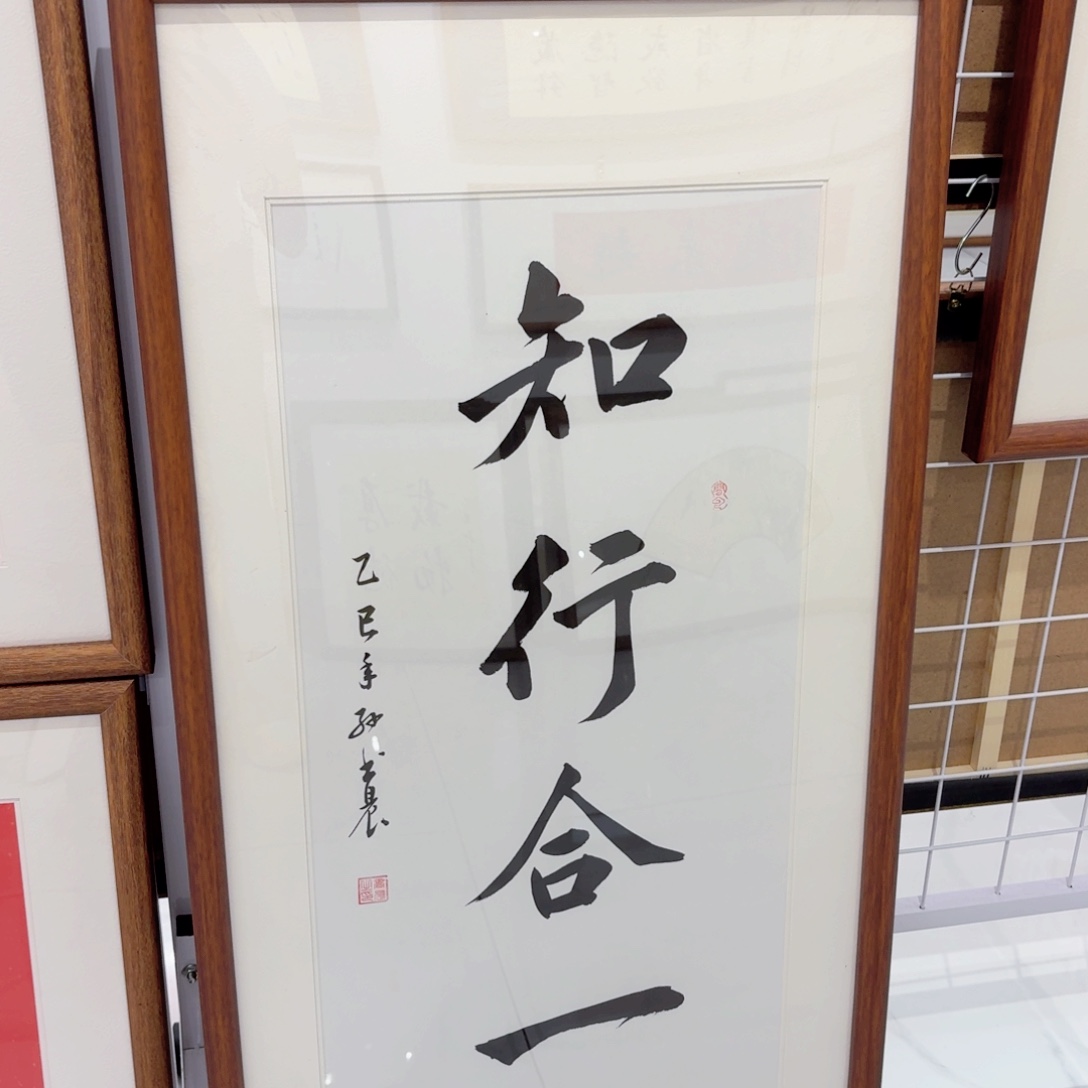 知行合一
乙巳年孙